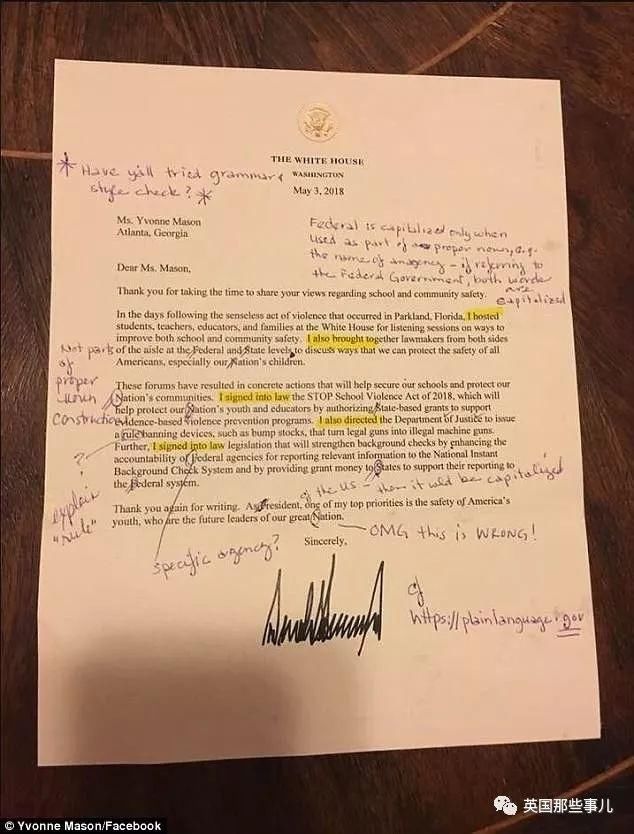 THE WHITE HOUSE
WASHINGTON
May 3, 2018
* Have y'all tried grammar &
style check? *
Ms. Yvonne Mason
Atlanta, Georgia
Federal is capitalized only when
used as part of a proper noun, e.g.
the name of an agency – if referring to
the Federal Government, both words
are
capitalized
Dear Ms. Mason,
Thank you for taking the time to share your views regarding school and community safety.
In the days following the senseless act of violence that occurred in Parkland, Florida, I hosted
students, teachers, educators, and families at the White House for listening sessions on ways to
improve both school and community safety. I also brought together lawmakers from both sides
of the aisle at the Federal and State levels to discuss ways that we can protect the safety of all
Americans, especially our Nation's children.
Not parts
of
proper
noun
construction
These forums have resulted in concrete actions that will help secure our schools and protect our
Nation's communities. I signed into law the STOP School Violence Act of 2018, which will
help protect our Nation's youth and educators by authorizing State-based grants to support
evidence-based violence prevention programs. I also directed the Department of Justice to issue
a rule banning devices, such as bump stocks, that turn legal guns into illegal machine guns.
Further, I signed into law legislation that will strengthen background checks by enhancing the
accountability of Federal agencies for reporting relevant information to the National Instant
Background Check System and by providing grant money to States to support their reporting to
the Federal system.
?
explain
"rule"
of the US – then it wld be capitalized
Thank you again for writing. As President, one of my top priorities is the safety of America's
youth, who are the future leaders of our great Nation.
OMG this is WRONG!
Sincerely,
specific agency?
cf
https://plainlanguage.gov
© Yvonne Mason/Facebook
英国那些事儿